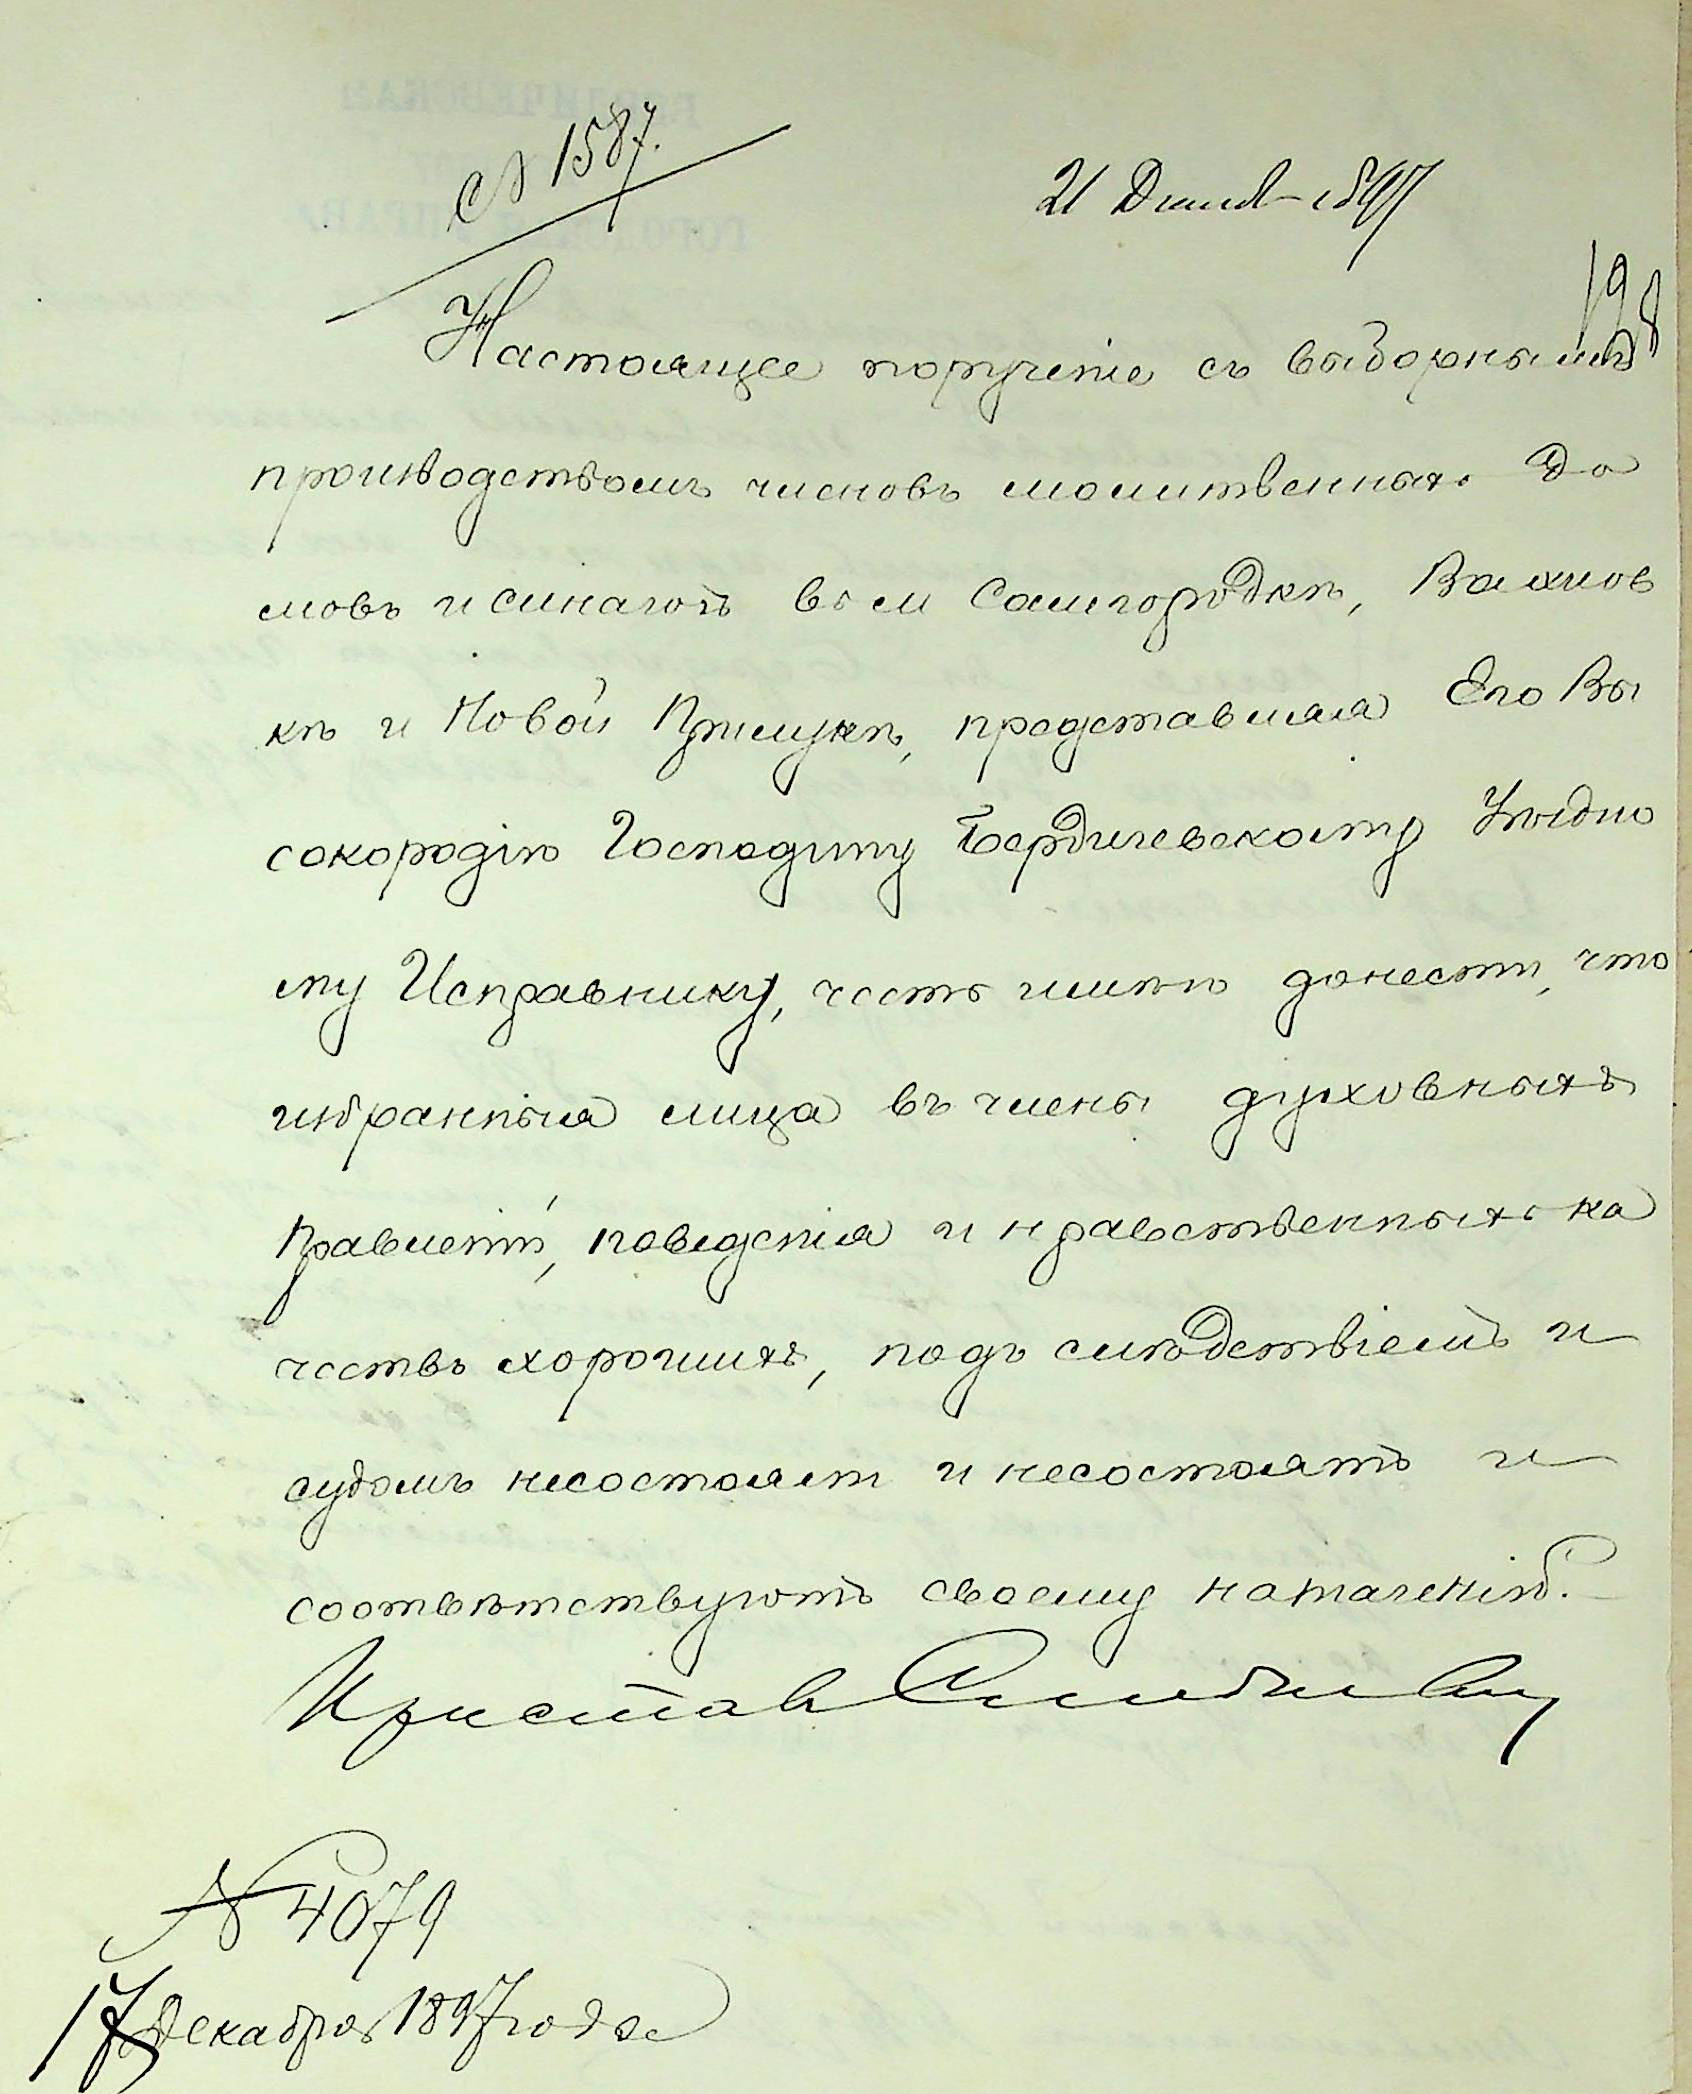 № 1587.
21 Декаб 1897
198
Настоящее порученіе съ выборнымъ
производствомъ членовъ молитвенныхъ до
мовъ и синагогъ въ м Самгородкѣ, Вахнов
кѣ и Новой Прилукѣ, представляя Его Вы
сокородію Господину Бердичевскому Уѣздно
му Исправнику, честь имѣю донести, что
избранныя лица въ члены духовныхъ
Правленій, поведенія и нравственныхъ ка
чествъ хорошихъ, подъ слѣдствіемъ и
судомъ несостояли и несостоятъ и
соотвѣтствуютъ своему назначенію.
Приставъ
№ 4079
17 Декабря 1897 года